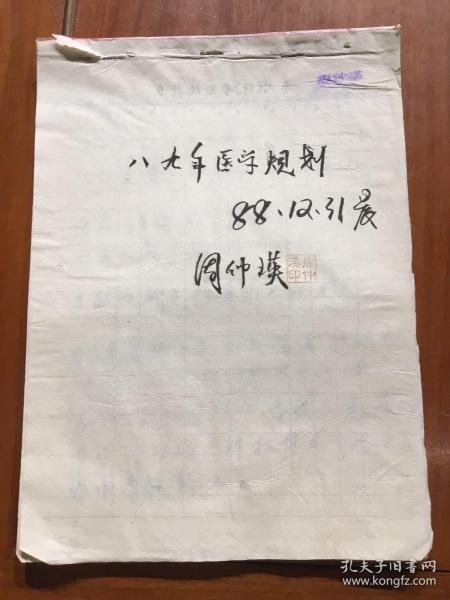 八九年医学规划
88.12.31晨
周仲瑛
周仲
瑛印
孔夫子旧书网
www.kongfz.com